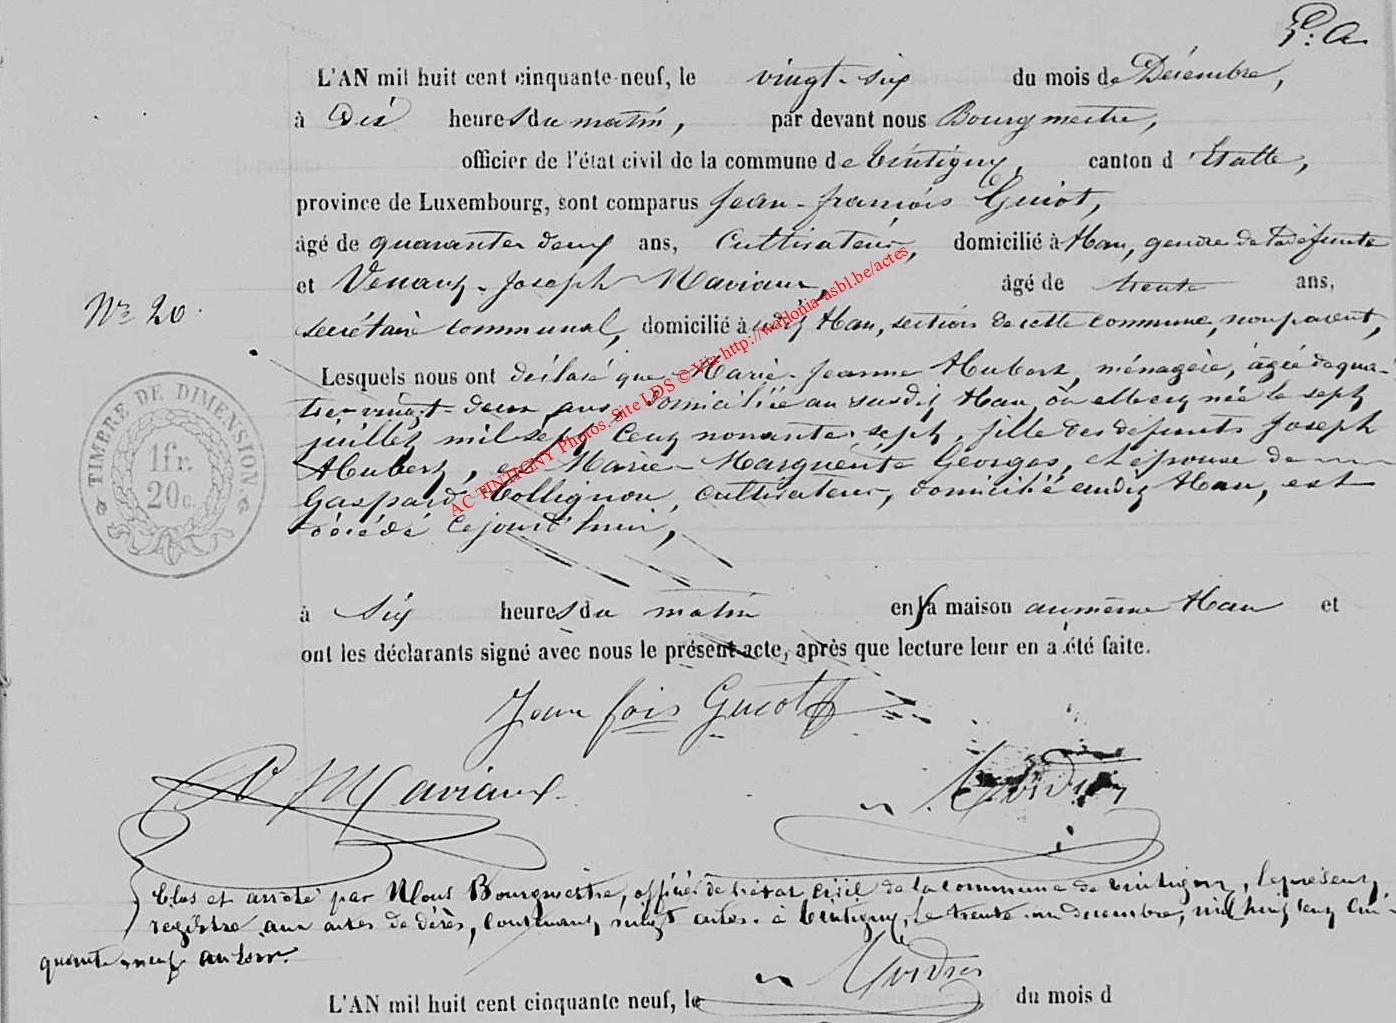 P. A.
L'AN mil huit cent cinquante-neuf, le vingt-six du mois de Décembre,
à Dix heures du matin, par devant nous Bourgmestre,
officier de l'état civil de la commune de Tintigny, canton d'Etalle,
province de Luxembourg, sont comparus Jean-françois Guiot,
âgé de quarante deux ans, Cultivateur, domicilié à Han, gendre de la défunte
et Venant-Joseph Maviaux, âgé de trente ans,
N° 20.
secrétaire communal, domicilié à Han, section de cette commune, non parent,
Lesquels nous ont déclaré que Marie-Jeanne Hubert, ménagère, âgée de qua-
domiciliée au susdit Han où elle est née le sept
juillet mil sept cent nonante-sept, fille des défunts Joseph
Hubert, et Marie-Marguerite Georges, et épouse de
Gaspard Collignon, cultivateur, domicilié audit Han, est
décédé cejourd'hui,
TIMBRE DE DIMENSION
1 fr.
20 c.
AC TINTIGNY Photos. Site LDS © Via http://wallonia-asbl.be/actes
à six heures du matin en sa maison au même Han et
ont les déclarants signé avec nous le présent acte, après que lecture leur en a été faite.
Jean fois Guiot
Maviaux
Clos et arrêté par Nous Bourgmestre, officier de l'état civil de la commune de Tintigny, le présent
registre aux actes de décès, contenant vingt actes. à Tintigny, le trente-un decembre, mil huit cent cin-
quante-neuf au soir.
L'AN mil huit cent cinquante neuf, le du mois d